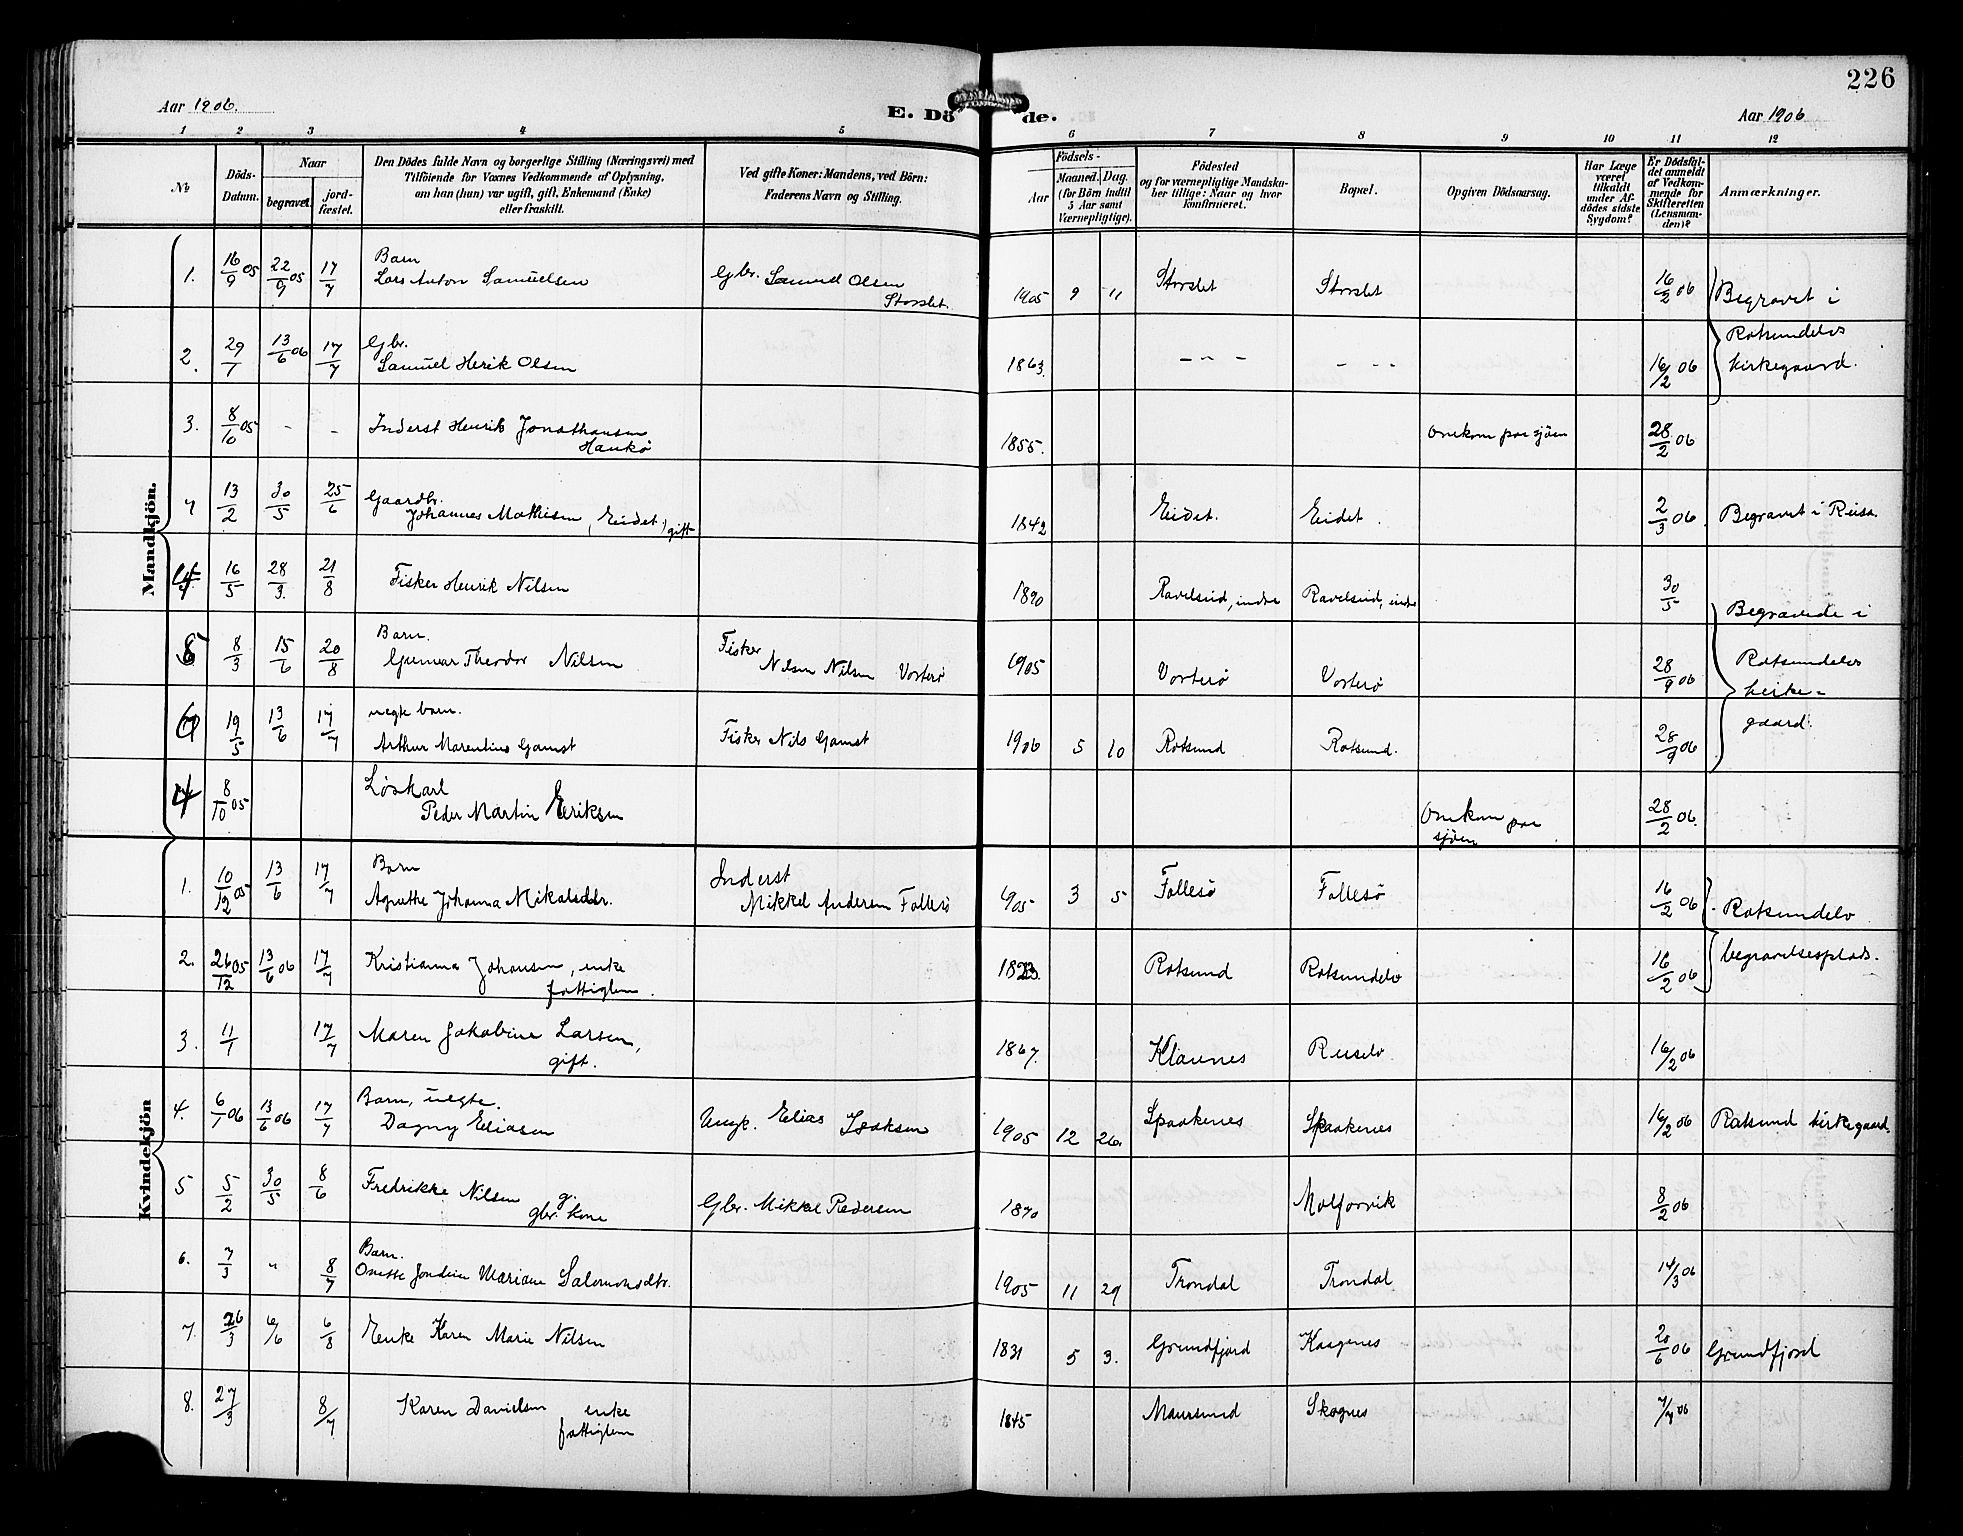 226
Aar 1906.
E. Dö de.
Aar 1906
1 2 3 4 5 6 7 8 9 10 11 12
No
Döds-Datum.
Naar
begravet.
jord-fæstet.
Den Dödes fulde Navn og borgerlige Stilling (Næringsvei) med
Tilföiende for Voxnes Vedkommende af Oplysning,
om han (hun) var ugift, gift, Enkemand (Enke)
eller fraskilt.
Ved gifte Koner: Mandens, ved Börn:
Faderens Navn og Stilling.
Födsels-
Aar
Maaned. Dag.
(for Börn indtil
5 Aar samt
Værnepligtige).
Födested
og for værnepligtige Mandska-
ber tillige: Naar og hvor
konfirmeret.
Bopæl.
Opgiven Dödsaarsag.
Har Læge
været
tilkaldt
under Af-
dödes sidste
Sygdom?
Er Dödsfal-
det anmeldt
af Vedkom-
mende for
Skifteretten
(Lensman-
den)?
Anmærkninger.
Mandkjön.
1. 16/9 05 22/9 05 17/7 Barn
Lars Anton Samuelsen Gbr. Samuel Olsen
Storslet 1905 9 11 Storslet Storslet 16/2 06 Begravet i
2. 29/1 13/6 06 17/7 Gbr.
Samuel Herik Olsen 1863. - " - - - - 16/2 06 Rotsundelvs
kirkegaard.
3. 8/10 05 - - Inderst Henrik Jonathansen
Haukø 1855. Omkom paa sjöen 28/2 06
4 13/2 30/5 25/6 Gaardbr.
Johannes Mathisen (Eidet) gift 1842 Eidet. Eidet. 2/3 06. Begravet i Reisa.
16/5 28/3. 21/8 Fisker Henrik Nilsen 1890 Ravelseid, indre Ravelseid, indre 30/5
8/3 15/6 20/8 Barn.
Gunnar Theodor Nilsen Fisker
Nilsen Nilsen Vorterø 1905 Vorterø Vorterø 28/9 06 Begravede i
Rotsundelvs
kirke=
gaard.
19/5 13/6 17/7 uegte barn.
Arthur Marentius Gamst Fisker Nils Gamst 1906 5 10 Rotsund Rotsund. 28/9 06
8/10 05 Løskarl
Peder Martin Eriksen Omkom paa
sjöen. 28/2 06.
Kvindekjön
1. 10/12 05 13/6 17/7 Barn
Agnethe Johanna Mikalsdtr. Inderst
Mikkel Andersen Follesø 1905 3 5 Follesø Follesø 16/2 06 Rotsundelv
2. 26/12 05 13/6 06 17/7 Kristianna Johansen, enke
fattiglem. 1823. Rotsund Rotsundelv 16/2 06 begravelsesplads.
3. 11/1 17/7 Maren Jakobine Larsen,
gift. 1867. Klaunes 16/2 06
4. 6/1 06 13/6 06 17/7 Barn, uegte.
Dagny Eliasen Ungk. Elias Isaksen 1905 12 26. Spaakenes Spaakenes 16/2 06 Rotsund kirkegaard.
5 5/2 30/5 8/6 Fredrikke Nilsen g.
gbr. kone Gbr. Mikkel Pedersen 1870 Molforvik 8/2 06
6. 7/3 " 8/7 Barn.
Mariane Salomonsdtr. 1905 11 29 Trondal Trondal 14/3 06
7. 26/3 6/6 6/8 Enke Karen Marie Nilsen 1831 5 3. Grundfjord Kaagenes 20/6 06 Grundfjord
8. 27/3 8/7 Karen Danielsen enke
fattiglem 1845 Maursund Skognes 7/7 06